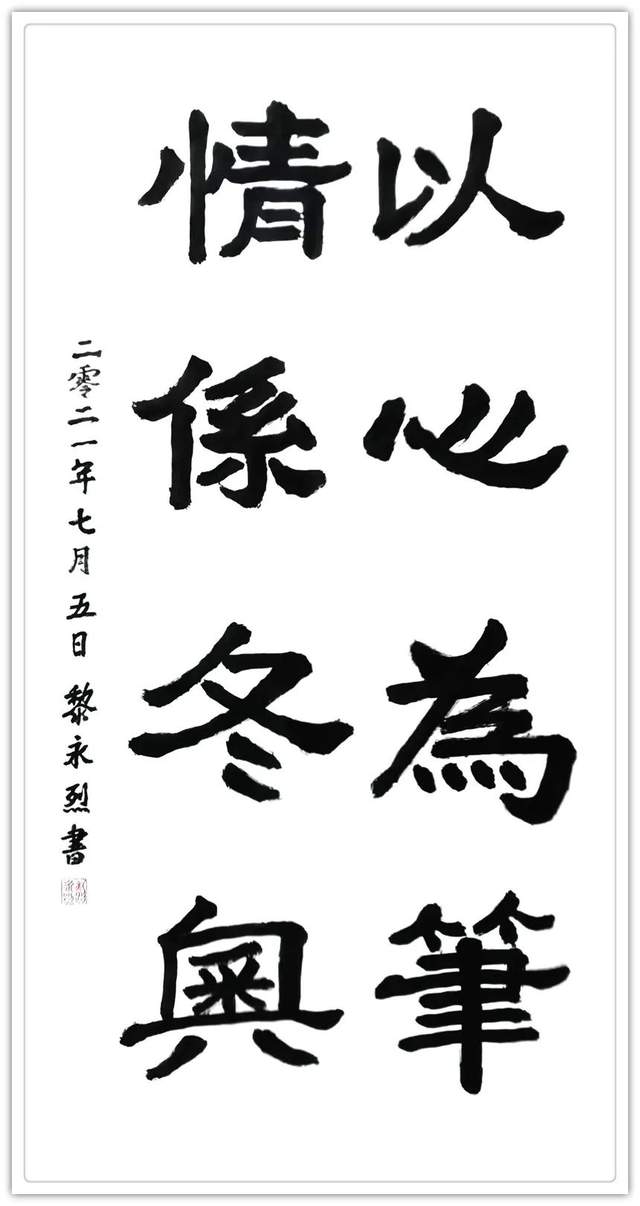 以心為筆
情係冬奧
二零二一年七月五日黎永烈書